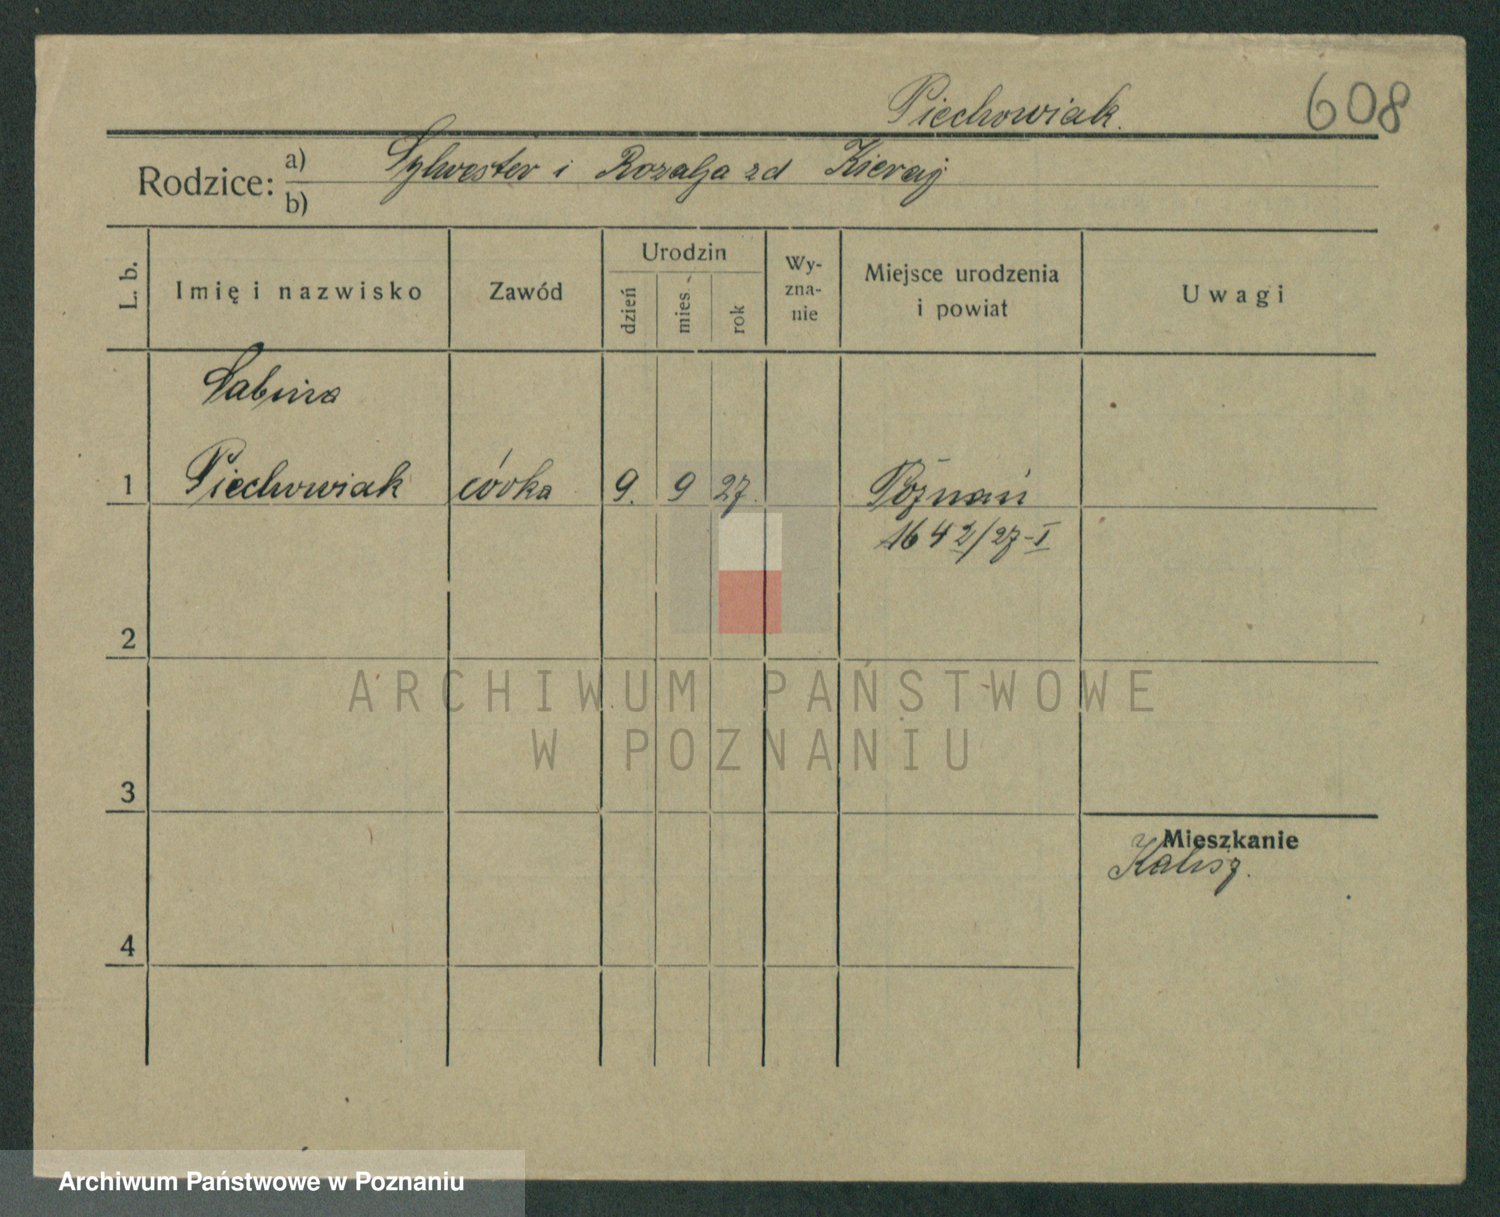 Piechowiak. 608
Rodzice: a) Sylwester i Rozalja zd Kieraj
b)
L. b. Imię i nazwisko Zawód Urodzin dzień mies. rok Wy-zna-nie Miejsce urodzenia i powiat Uwagi
Sabina
1 Piechowiak córka 9. 9 27. Poznań
1642/27-I
2
ARCHIWUM PAŃSTWOWE
W POZNANIU
3
Mieszkanie
Kalisz.
4
Archiwum Państwowe w Poznaniu